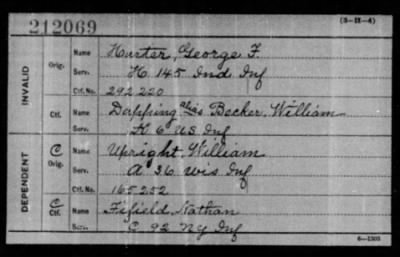 212069
(3-H-4)
INVALID
Orig.
Name Hunter, George F.
Serv. H 145 Ind Inf
Ctf. No. 292220
Ctf.
Name Depping alias Becker, William
Serv. H 6 US Inf
DEPENDENT
C Orig.
Name Upright, William
Serv. A 36 Wis Inf
Ctf. No. 165252
C Ctf.
Name Fifield, Nathan
Serv. C 92 Ny Inf